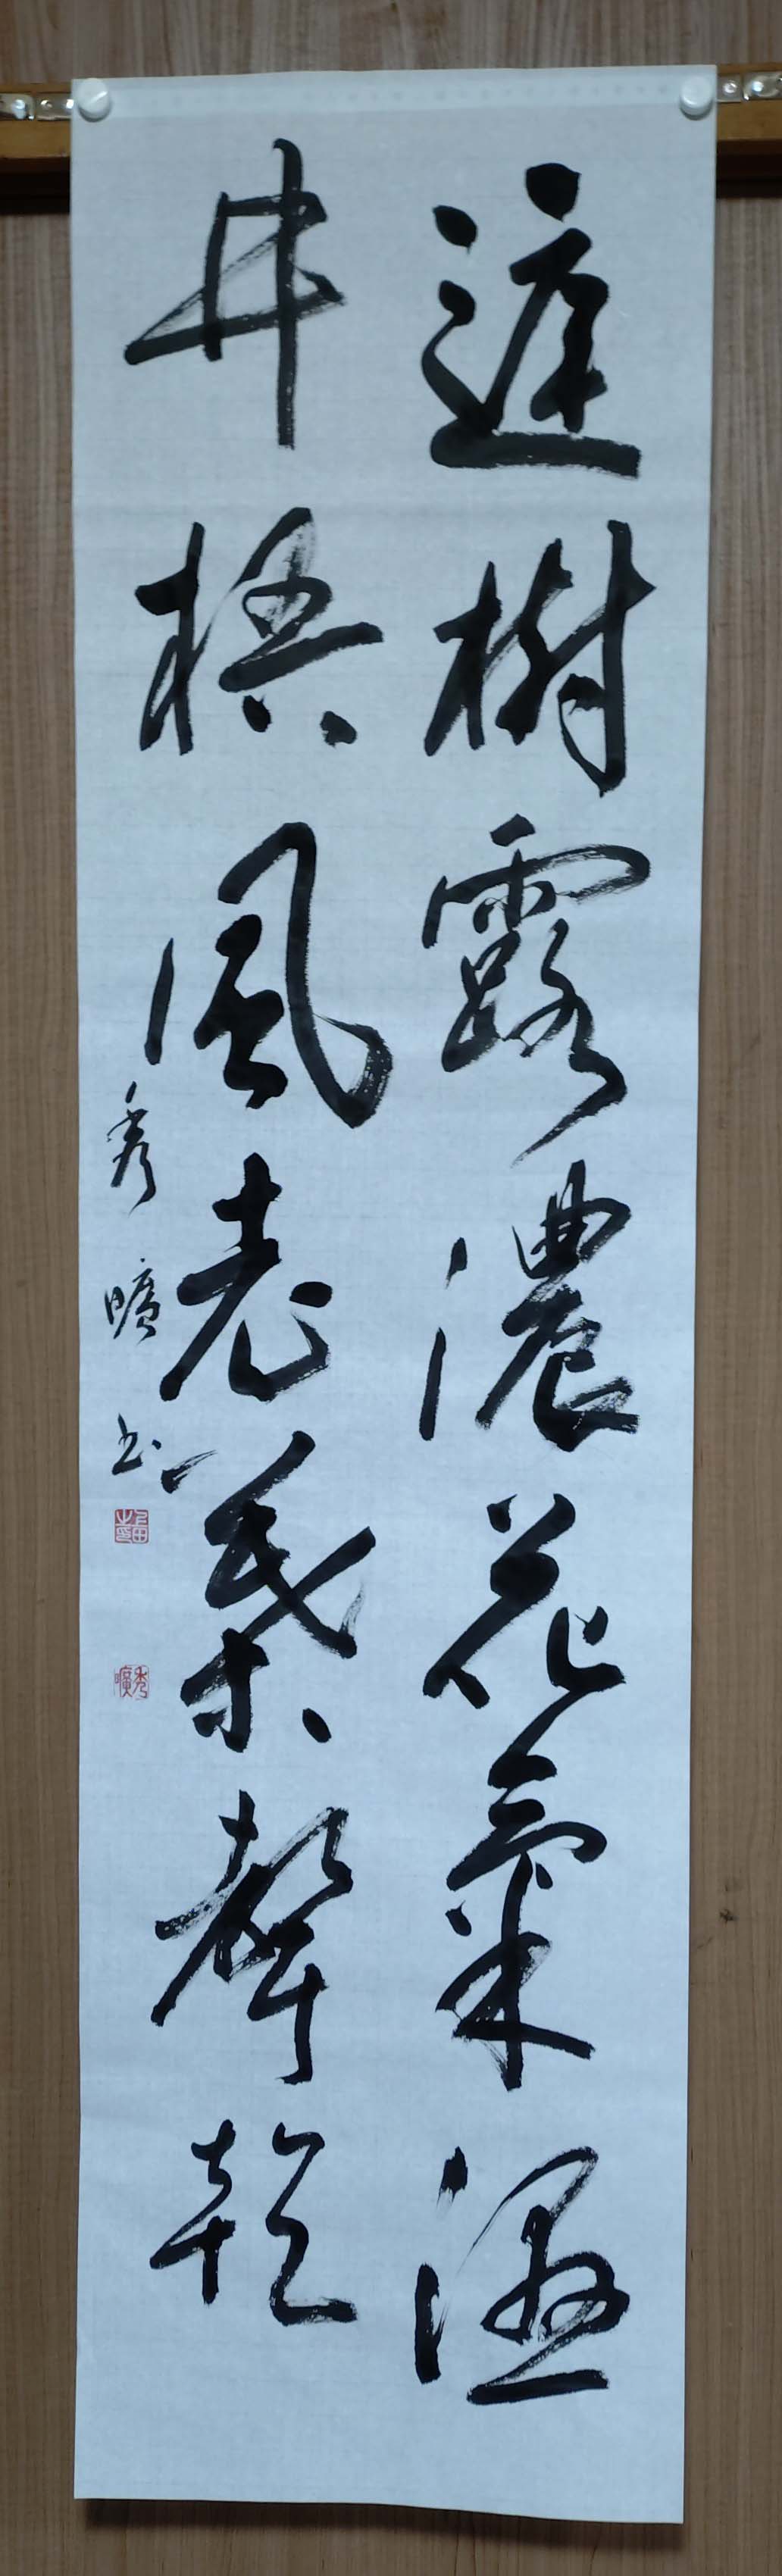 庭樹露濃花氣濕
井梧風老葉聲乾
秀曠書